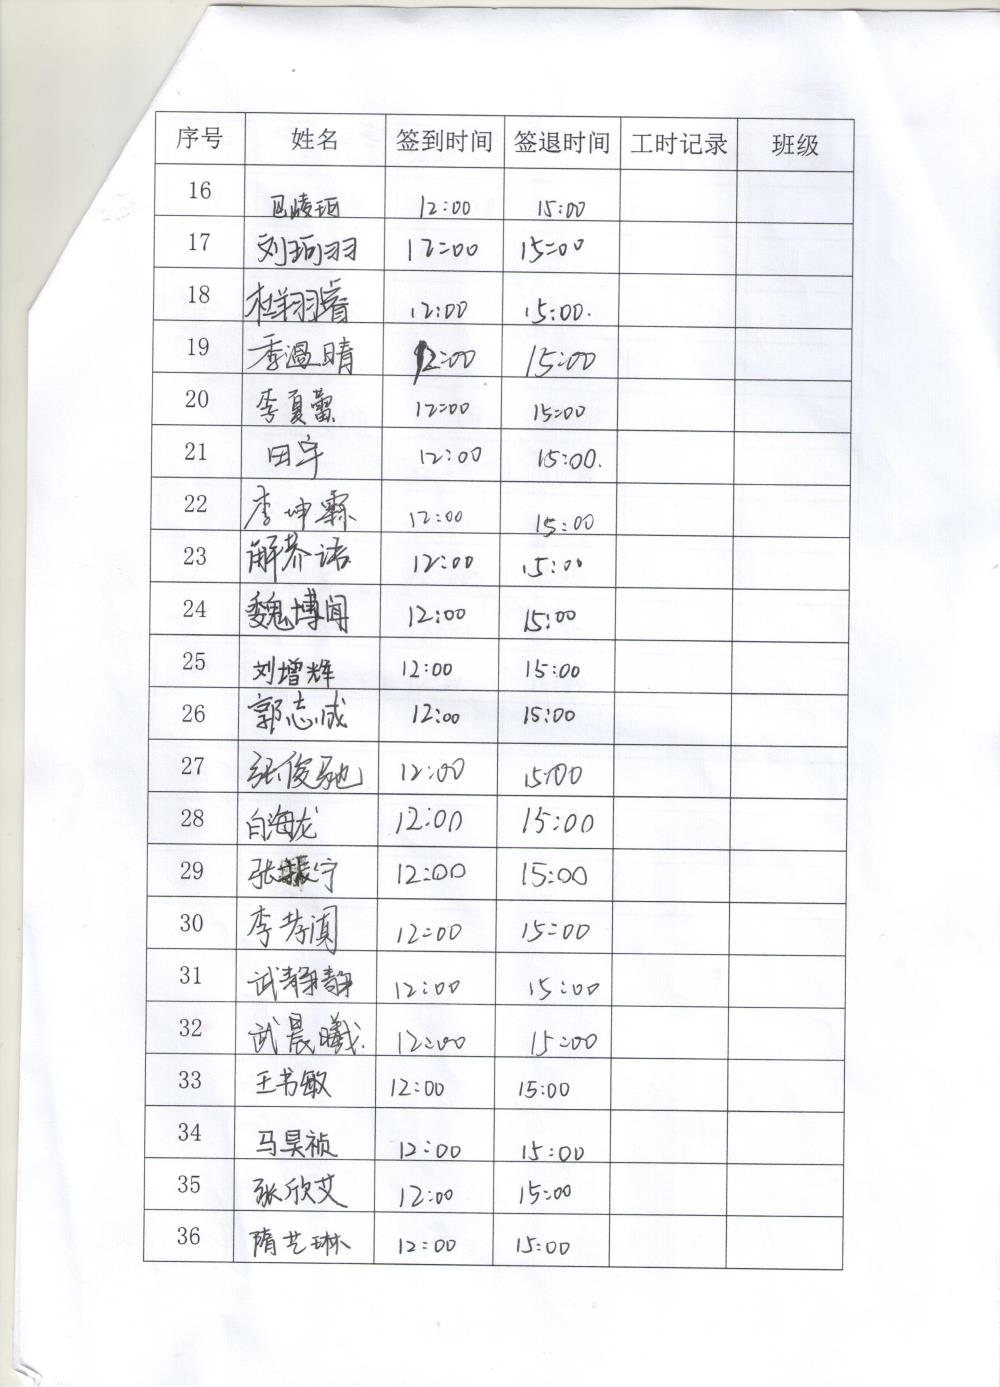 序号 姓名 签到时间 签退时间 工时记录 班级
16 12:00 15:00
17 刘珂羽 12:00 15:00
18 杜翔睿 12:00 15:00.
19 季温晴 12:00 15:00
20 李夏蕾 12:00 15:00
21 田宇 12:00 15:00.
22 李坤霖 12:00 15:00
23 解乔语 12:00 15:00
24 魏博闻 12:00 15:00
25 刘增辉 12:00 15:00
26 郭志成 12:00 15:00
27 张俊驰 12:00 15:00
28 白海龙 12:00 15:00
29 张振宁 12:00 15:00
30 李芳滇 12:00 15:00
31 武静静 12:00 15:00
32 武晨曦 12:00 15:00
33 王书敏 12:00 15:00
34 马昊祯 12:00 15:00
35 张欣艾 12:00 15:00
36 隋艺琳 12:00 15:00